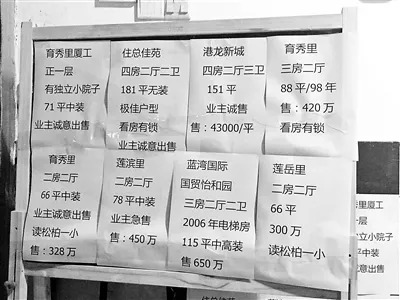 育秀里厦工
正一层
有独立小院子
71平中装
业主诚意出售
住总佳苑
四房二厅二卫
181平无装
极佳户型
看房有锁
业主诚意出售
港龙新城
四房二厅三卫
151平
业主诚售
售：43000/平
育秀里
三房二厅
88平/98年
售：420万
看房有锁
育秀里
二房二厅
66平中装
业主诚意出售
读松柏一小
售：328万
莲滨里
二房二厅
78平中装
业主急售
售：450万
蓝湾国际
国贸怡和园
三房二厅二卫
2006年电梯房
115平中高装
售650万
莲岳里
二房二厅
66平
300万
读松柏一小
秀里厦工
一层
独立小院子
1平中装
主诚意出售